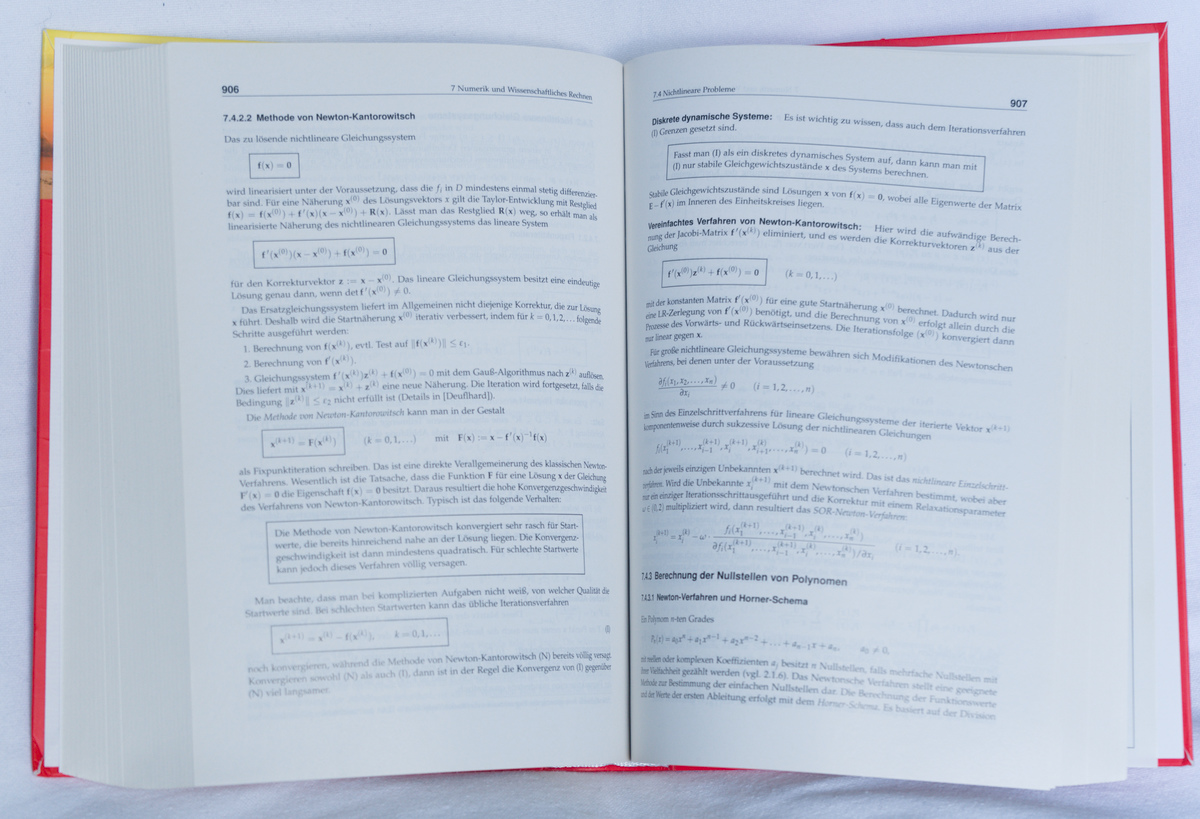 906
7 Numerik und Wissenschaftliches Rechnen
7.4.2.2 Methode von Newton-Kantorowitsch
Das zu lösende nichtlineare Gleichungssystem
f(x) = 0
wird linearisiert unter der Voraussetzung, dass die fᵢ in D mindestens einmal stetig differenzier-
bar sind. Für eine Näherung x⁽⁰⁾ des Lösungsvektors x gilt die Taylor-Entwicklung mit Restglied
f(x) = f(x⁽⁰⁾) + f′(x)(x − x⁽⁰⁾) + R(x). Lässt man das Restglied R(x) weg, so erhält man als
linearisierte Näherung des nichtlinearen Gleichungssystems das lineare System
f′(x⁽⁰⁾)(x − x⁽⁰⁾) + f(x⁽⁰⁾) = 0
für den Korrekturvektor z := x − x⁽⁰⁾. Das lineare Gleichungssystem besitzt eine eindeutige
Lösung genau dann, wenn det f′(x⁽⁰⁾) ≠ 0.
Das Ersatzgleichungssystem liefert im Allgemeinen nicht diejenige Korrektur, die zur Lösung
x führt. Deshalb wird die Startnäherung x⁽⁰⁾ iterativ verbessert, indem für k = 0, 1, 2, … folgende
Schritte ausgeführt werden:
1. Berechnung von f(x⁽ᵏ⁾), evtl. Test auf ‖f(x⁽ᵏ⁾)‖ ≤ ε₁.
2. Berechnung von f′(x⁽ᵏ⁾).
3. Gleichungssystem f′(x⁽ᵏ⁾)z⁽ᵏ⁾ + f(x⁽ᵏ⁾) = 0 mit dem Gauß-Algorithmus nach z⁽ᵏ⁾ auflösen.
Dies liefert mit x⁽ᵏ⁺¹⁾ = x⁽ᵏ⁾ + z⁽ᵏ⁾ eine neue Näherung. Die Iteration wird fortgesetzt, falls die
Bedingung ‖z⁽ᵏ⁾‖ ≤ ε₂ nicht erfüllt ist (Details in [Deuflhard]).
Die Methode von Newton-Kantorowitsch kann man in der Gestalt
x⁽ᵏ⁺¹⁾ = F(x⁽ᵏ⁾) (k = 0, 1, …) mit F(x) := x − f′(x)⁻¹f(x)
als Fixpunktiteration schreiben. Das ist eine direkte Verallgemeinerung des klassischen Newton-
Verfahrens. Wesentlich ist die Tatsache, dass die Funktion F für eine Lösung x der Gleichung
F′(x) = 0 die Eigenschaft f(x) = 0 besitzt. Daraus resultiert die hohe Konvergenzgeschwindigkeit
des Verfahrens von Newton-Kantorowitsch. Typisch ist das folgende Verhalten:
Die Methode von Newton-Kantorowitsch konvergiert sehr rasch für Start-
werte, die bereits hinreichend nahe an der Lösung liegen. Die Konvergenz-
geschwindigkeit ist dann mindestens quadratisch. Für schlechte Startwerte
kann jedoch dieses Verfahren völlig versagen.
Man beachte, dass man bei komplizierten Aufgaben nicht weiß, von welcher Qualität die
Startwerte sind. Bei schlechten Startwerten kann das übliche Iterationsverfahren
x⁽ᵏ⁺¹⁾ = x⁽ᵏ⁾ − f(x⁽ᵏ⁾), k = 0, 1, … (I)
noch konvergieren, während die Methode von Newton-Kantorowitsch (N) bereits völlig versagt.
Konvergieren sowohl (N) als auch (I), dann ist in der Regel die Konvergenz von (I) gegenüber
(N) viel langsamer.
7.4 Nichtlineare Probleme
907
Diskrete dynamische Systeme: Es ist wichtig zu wissen, dass auch dem Iterationsverfahren
(I) Grenzen gesetzt sind.
Fasst man (I) als ein diskretes dynamisches System auf, dann kann man mit
(I) nur stabile Gleichgewichtszustände x des Systems berechnen.
Stabile Gleichgewichtszustände sind Lösungen x von f(x) = 0, wobei alle Eigenwerte der Matrix
E − f′(x) im Inneren des Einheitskreises liegen.
Vereinfachtes Verfahren von Newton-Kantorowitsch: Hier wird die aufwändige Berech-
nung der Jacobi-Matrix f′(x⁽ᵏ⁾) eliminiert, und es werden die Korrekturvektoren z⁽ᵏ⁾ aus der
Gleichung
f′(x⁽⁰⁾)z⁽ᵏ⁾ + f(x⁽⁰⁾) = 0 (k = 0, 1, …)
mit der konstanten Matrix f′(x⁽⁰⁾) für eine gute Startnäherung x⁽⁰⁾ berechnet. Dadurch wird nur
eine LR-Zerlegung von f′(x⁽⁰⁾) benötigt, und die Berechnung von x⁽⁰⁾ erfolgt allein durch die
Prozesse des Vorwärts- und Rückwärtseinsetzens. Die Iterationsfolge (x⁽⁰⁾) konvergiert dann
nur linear gegen x.
Für große nichtlineare Gleichungssysteme bewähren sich Modifikationen des Newtonschen
Verfahrens, bei denen unter der Voraussetzung
∂fᵢ(x₁, x₂, …, xₙ)/∂xᵢ ≠ 0 (i = 1, 2, …, n)
im Sinn des Einzelschrittverfahrens für lineare Gleichungssysteme der iterierte Vektor x⁽ᵏ⁺¹⁾
komponentenweise durch sukzessive Lösung der nichtlinearen Gleichungen
fᵢ(x₁⁽ᵏ⁺¹⁾, …, xᵢ₋₁⁽ᵏ⁺¹⁾, xᵢ⁽ᵏ⁺¹⁾, xᵢ₊₁⁽ᵏ⁾, …, xₙ⁽ᵏ⁾) = 0 (i = 1, 2, …, n)
nach der jeweils einzigen Unbekannten x⁽ᵏ⁺¹⁾ berechnet wird. Das ist das nichtlineare Einzelschritt-
verfahren. Wird die Unbekannte xᵢ⁽ᵏ⁺¹⁾ mit dem Newtonschen Verfahren bestimmt, wobei aber
nur ein einziger Iterationsschritt ausgeführt und die Korrektur mit einem Relaxationsparameter
ω ∈ (0, 2) multipliziert wird, dann resultiert das SOR-Newton-Verfahren:
xᵢ⁽ᵏ⁺¹⁾ = xᵢ⁽ᵏ⁾ − ω · fᵢ(x₁⁽ᵏ⁺¹⁾, …, xᵢ₋₁⁽ᵏ⁺¹⁾, xᵢ⁽ᵏ⁾, …, xₙ⁽ᵏ⁾) / ∂fᵢ(x₁⁽ᵏ⁺¹⁾, …, xᵢ₋₁⁽ᵏ⁺¹⁾, xᵢ⁽ᵏ⁾, …, xₙ⁽ᵏ⁾)/∂xᵢ (i = 1, 2, …, n).
7.4.3 Berechnung der Nullstellen von Polynomen
7.4.3.1 Newton-Verfahren und Horner-Schema
Ein Polynom n-ten Grades
Pₙ(x) = a₀xⁿ + a₁xⁿ⁻¹ + a₂xⁿ⁻² + … + aₙ₋₁x + aₙ, a₀ ≠ 0,
mit reellen oder komplexen Koeffizienten aⱼ besitzt n Nullstellen, falls mehrfache Nullstellen mit
ihrer Vielfachheit gezählt werden (vgl. 2.1.6). Das Newtonsche Verfahren stellt eine geeignete
Methode zur Bestimmung der einfachen Nullstellen dar. Die Berechnung der Funktionswerte
und der Werte der ersten Ableitung erfolgt mit dem Horner-Schema. Es basiert auf der Division